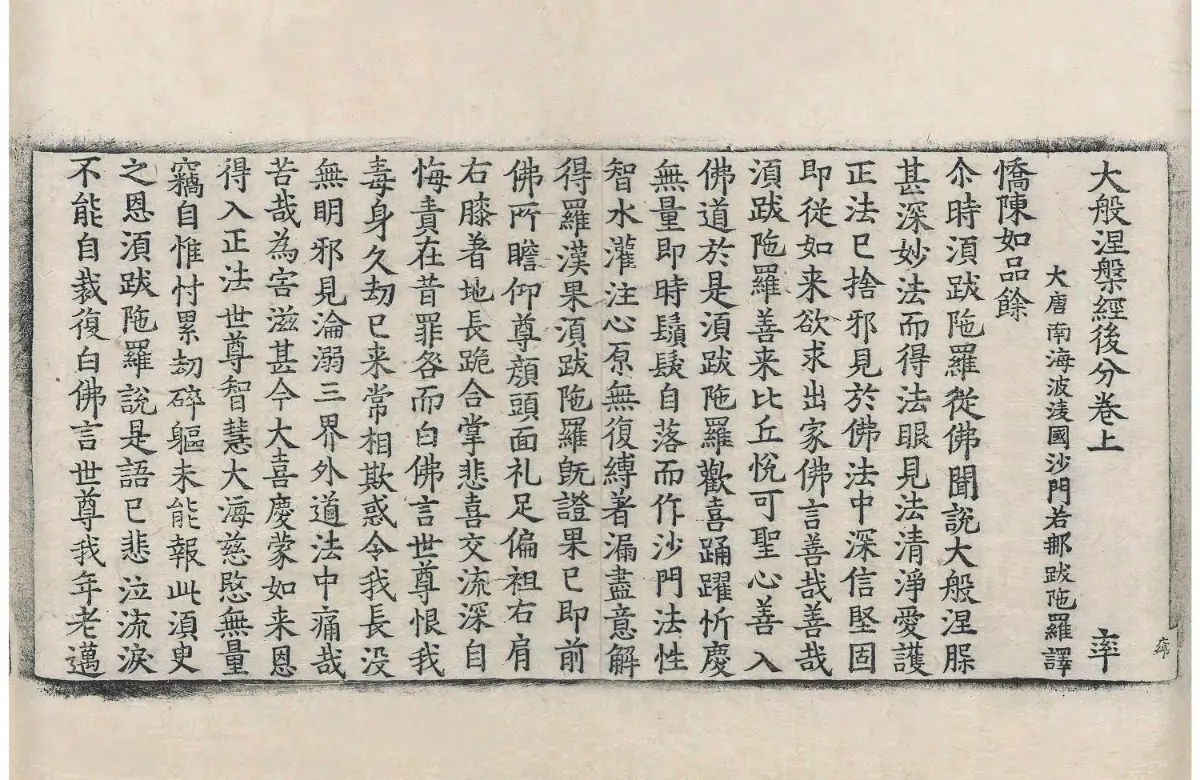 大般涅槃經後分卷上　率
大唐南海波淩國沙門若那跋陁羅譯
憍陳如品餘
尒時湏跋陁羅從佛聞說大般涅槃
甚深妙法而得法眼見法清淨愛護
正法已捨邪見於佛法中深信堅固
即從如来欲求出家佛言善哉善哉
湏跋陁羅善来比丘悅可聖心善入
佛道於是湏跋陁羅歡喜踊躍忻慶
無量即時鬚髮自落而作沙門法性
智水灌注心原無復縛著漏盡意解
得羅漢果湏跋陁羅旣證果已即前
佛所瞻仰尊顏頭面礼足偏袒右肩
右膝著地長跪合掌悲喜交流深自
悔責在昔罪咎而白佛言世尊恨我
毒身久劫已来常相欺惑令我長没
無明邪見淪溺三界外道法中痛哉
苦哉為害滋甚今大喜慶蒙如来恩
得入正法世尊智慧大海慈愍無量
竊自惟忖累劫碎軀未能報此湏臾
之恩湏跋陁羅說是語已悲泣流淚
不能自裁復白佛言世尊我年老邁